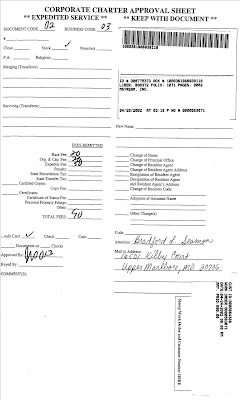 CORPORATE CHARTER APPROVAL SHEET
** EXPEDITED SERVICE ** ** KEEP WITH DOCUMENT **
DOCUMENT CODE 02 BUSINESS CODE 03
#
Close Stock ✓ Nonstock
P.A. Religious
Merging (Transferor)
Surviving (Transferee)
ID #
PAGES: 0002
New Name
FEES REMITTED
Base Fee: 20
Org. & Cap. Fee: 20
Expedite Fee: 50
Penalty:
State Recordation Tax:
State Transfer Tax:
Certified Copies
Copy Fee:
Certificates
Certificate of Status Fee:
Personal Property Filings:
Other:
TOTAL FEES: 90
Change of Name
Change of Principal Office
Change of Resident Agent
Change of Resident Agent Address
Resignation of Resident Agent
Designation of Resident Agent
and Resident Agent's Address
Change of Business Code
Adoption of Assumed Name
Other Change(s)
Credit Card ✓ Check Cash
Documents on Checks
Approved By:
Keyed By:
COMMENT(S):
Code
Attention: Bradford
Mail to Address:
Kilby Court
Upper Marlboro, MD
Stamp Work Order and Customer Number HERE